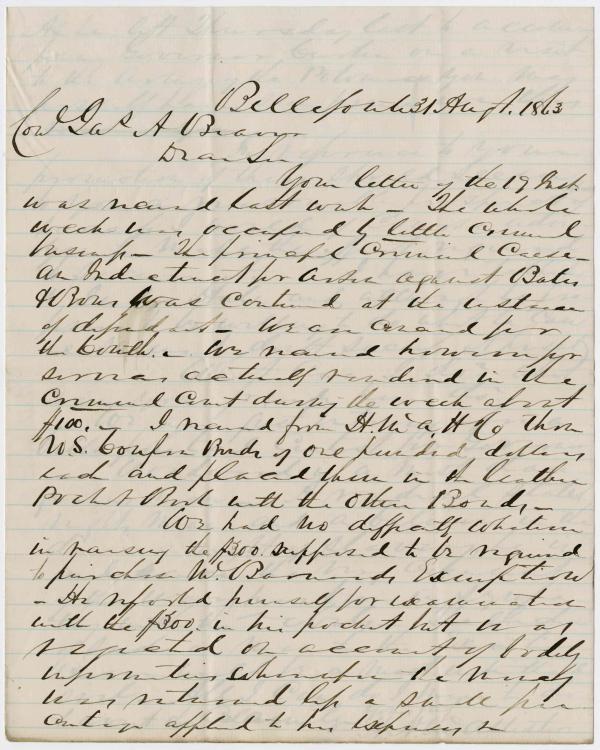 Bellefonte 31 Augt. 1863
Col Jas A Beaver
Dear Sir
Your letter of the 19 Inst
was received last week – The whole
week was occupied by little Criminal
– The principal Criminal Case –
an Indictment for Arson against Bates
& was Continued at the instance
of defendants – We are for
the – We received however for
services actually rendered in the
Criminal Court during the week about
$100. I received from H. & Co three
U.S. Coupon Bonds of one hundred dollars
each and placed them in the leather
Pocket Book with the other Bonds –
We had no difficulty whatever
in raising the $300. supposed to be required
to purchase Mr. Barnards Exemption
– He reported himself for examination
with the $300. in his pocket but was
rejected on account of bodily
infirmities whereupon the money
was returned less a small per
centage applied to his expenses